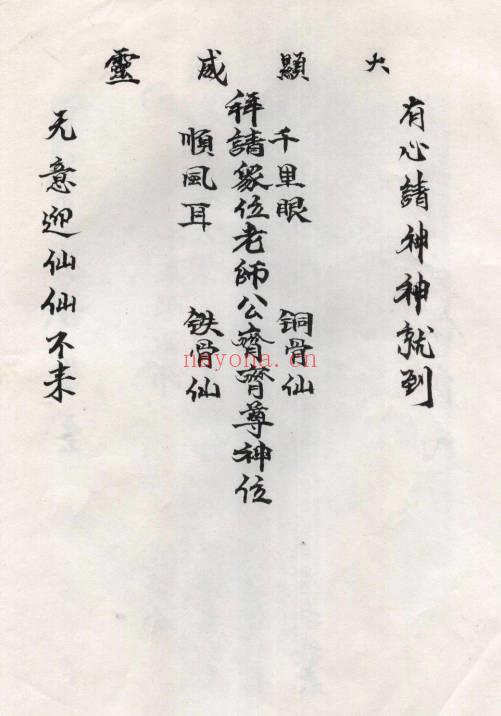 大顯威靈
有心請神神就到
千里眼 銅骨仙
拜請衆位老師公齊齊尊神位
順風耳 铁骨仙
无意迎仙仙不来
nayona.cn